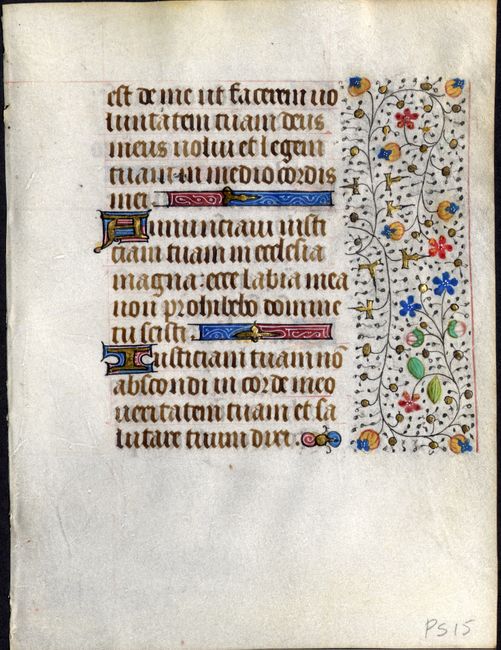 est de me ut facerem uo
luntatem tuam deus
meus uolui et legem
tuam in medio cordis
mei
Annunciaui iusti
ciam tuam in ecclesia
magna: ecce labia mea
non prohibebo domine
tu scisti.
Iusticiam tuam nō
abscondi in corde meo
ueritatem tuam et sa
lutare tuum dixi.
PS15